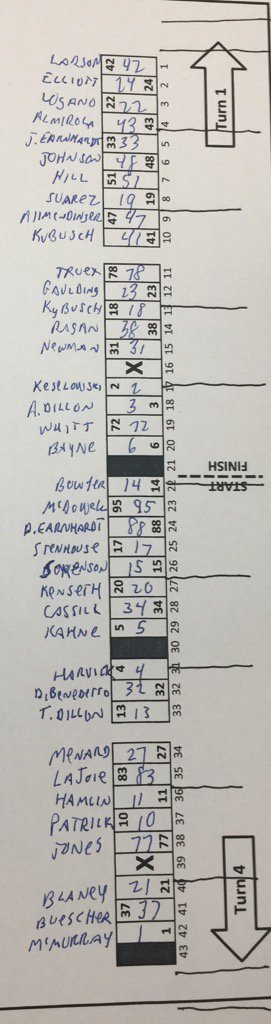 Turn 1
LARSON 42 42 1
ELLIOTT 24 24 2
LOGANO 22 22 3
ALMIROLA 43 43 4
J. EARNHARDT 33 33 5
JOHNSON 48 48 6
HILL 51 51 7
SUAREZ 19 19 8
AllMENDINGER 47 47 9
KUBUSCH 41 41 10
TRUEX 78 78 11
GAULDING 23 23 12
KyBUSCH 18 18 13
RAGAN 38 38 14
NEWMAN 31 31 15
X 16
KESELOWSKI 2 2 17
A. DILLON 3 3 18
WHITT 72 72 19
BAYNE 6 6 20
21
START
FINISH
BOWYER 14 14 22
McDOWELL 95 95 23
D. EARNHARDT 88 88 24
STENHOUSE 17 17 25
SORENSON 15 15 26
KENSETH 20 20 27
CASSILL 34 34 28
KAHNE 5 5 29
30
HARVICK 4 4 31
DiBENEDETTO 32 32 32
T. DILLON 13 13 33
MENARD 27 27 34
LAJOIE 83 83 35
HAMLIN 11 11 36
PATRICK 10 10 37
JONES 77 77 38
X 39
BLANEY 21 21 40
BUESCHER 37 37 41
McMURRAY 1 1 42
43
Turn 4